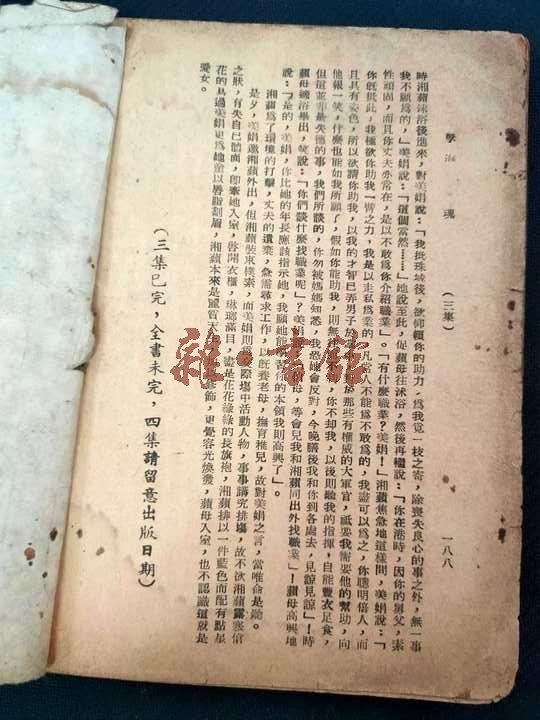 孽海 魂 (三集) 一八八
時湘蘋沐浴後進來，對美娟說：「我抵珠城後，欲仰賴你的助力，爲我覓一枝之寄，除喪失良心的事之外，無一事
我不願爲的，」美娟說：「這個當然……」她說至此，促蘋母往沐浴，然後再續說：「你在港時，因你的舅父，素
性頑固，而且你丈夫亦常在，是以不敢爲你介紹職業」。「有什麽職業？美娟！」湘蘋焦急地這樣問，美娟說：「
你旣抵此，我極欲你助我一臂之力，我是以走私爲業的，凡常人不能爲不敢爲的，我盡可以爲之，你聰明倍人，而
且具有姿色，所以欲請你助我，以我的才智已弄男子於 那些有權威的大軍官，祗要我需要他的幫助，向
他報一笑，什麽也能如我所願了，假如你能助我，則無往 不利，你不却我，以後則聽我的指揮，自能豐衣足食，
但這並非最失德的事，我們所談的，你勿被媽媽知悉，我恐她會反對，今晚膳後我和你到各處去，見諒見諒」！時
蘋母纔浴畢出，笑說：「你們談什麽找職業呢」？美娟說：「伯母，等會兒我和湘蘋同出外找職業」！蘋母高興地
說：「是的，美娟，你比她的年長應該指示她，我願她能學習你的本領我則高興了」。
湘蘋爲了環境的打擊，丈夫的遺棄，急需尋求工作，以旣養老母，撫育稚兒，故對美娟之言，當唯命是聽。
是夕，美娟邀湘蘋外出，但湘蘋裝束樸素，而美娟則爲交際塲中活動人物，事事講究排塲，故不欲湘蘋露寒傖
之狀，有失自己體面，卽牽她入室，啓開衣櫃，琳瑯滿目，盡是花花綠綠的長旗袍，湘蘋排以一件藍色而配有點星
花的爲過美娟更爲她董以唇脂割眉，湘蘋本來是麗質天生， 修飾，更覺容光煥發，蘋母入室，也不認識這就是
愛女。
(三集已完，全書未完，四集請留意出版日期)
雜書館